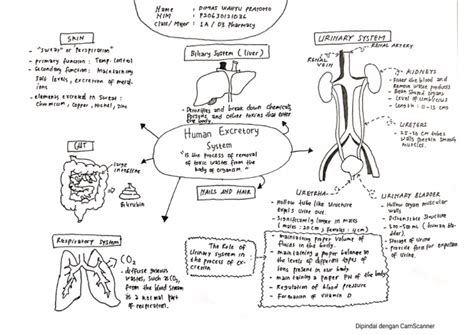 Name : DIMAS WAHYU PRATOTO
NIM : P20630121036
Class / Major : 1A / D3 Pharmacy
SKIN
- "Sweat or Perspiration"
- primary function : Temp. Control
- Secondary function : Maintaining
Salt levels, excretion of
- elements excreted in Sweat :
Chromium, Copper, Nickel, Zinc
Biliary System (liver)
- and break down chemicals,
Poisons, and other toxins that enter
the body.
URINARY SYSTEM
RENAL ARTERY
RENAL
VEIN
KIDNEYS
- Filter the blood and
Remove waste products
- Bean Shaped organs
- Level of
- Length : 11-13 cms
URETERS
- 25-30 cm tubes
walls contain Smooth
muscles.
Human Excretory
System
"is the process of removal
of toxic wastes from the
body of organism."
GIT
large
intestine
Bilirubin
NAILS AND HAIR
URETHRA
- Hollow tube like structure
expels urine out.
- Significantly longer in males
(males : 20 cm) (Females : 4cm)
URINARY BLADDER
- Hollow organ muscular
walls
- Distensible Structure
- 300-500 mL (human
bladder)
- Storage of Urine
- Provide for expulsion
of Urine.
Respiratory System
CO2
- diffused gaseous
wastes, such as CO2,
from the blood stream
is a normal part
of respiration.
The Role of
Urinary System in
the process of ex-
cretion
- maintaining proper Volume of
fluids in the body
- maintaining a proper balance
the levels of different types of
ions present in our body.
- maintaining a proper PH of the body
- Regulation of blood pressure
- Formation of vitamin D
Dipindai dengan CamScanner